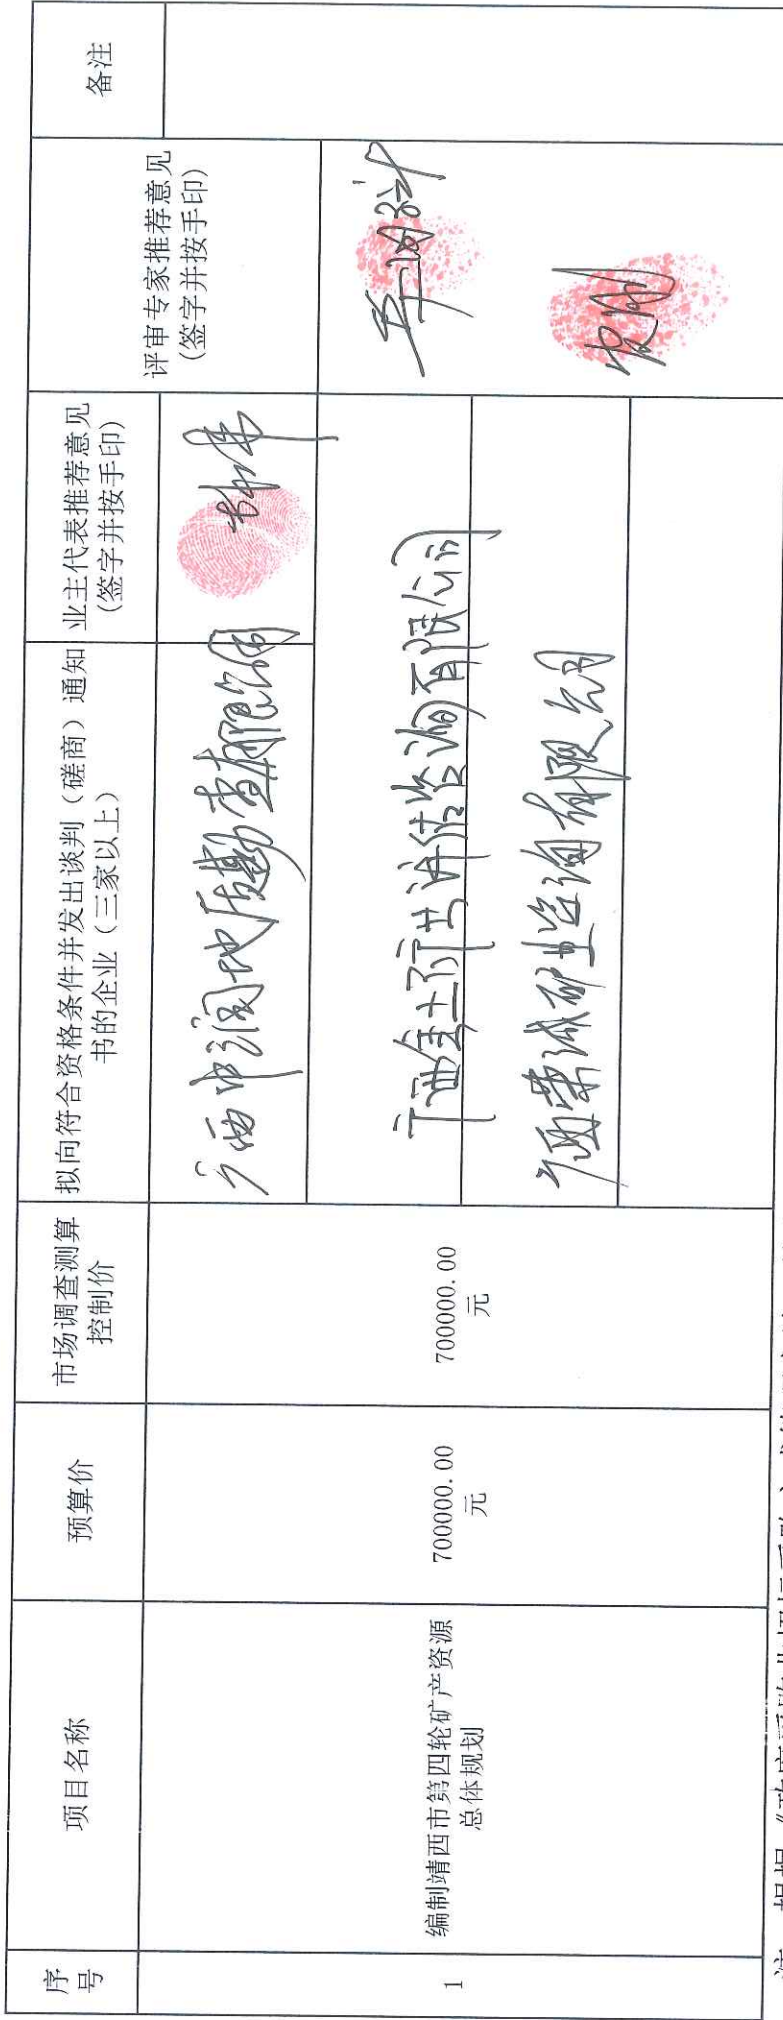 序
号
项目名称
预算价
市场调查测算
控制价
拟向符合资格条件并发出谈判（磋商）通知
书的企业（三家以上）
业主代表推荐意见
(签字并按手印)
评审专家推荐意见
(签字并按手印)
备注
1
编制靖西市第四轮矿产资源
总体规划
700000.00
元
700000.00
元
广西中润地质勘查有限公司
广西金土矿业评估咨询有限公司
广西荣诚矿业咨询有限公司